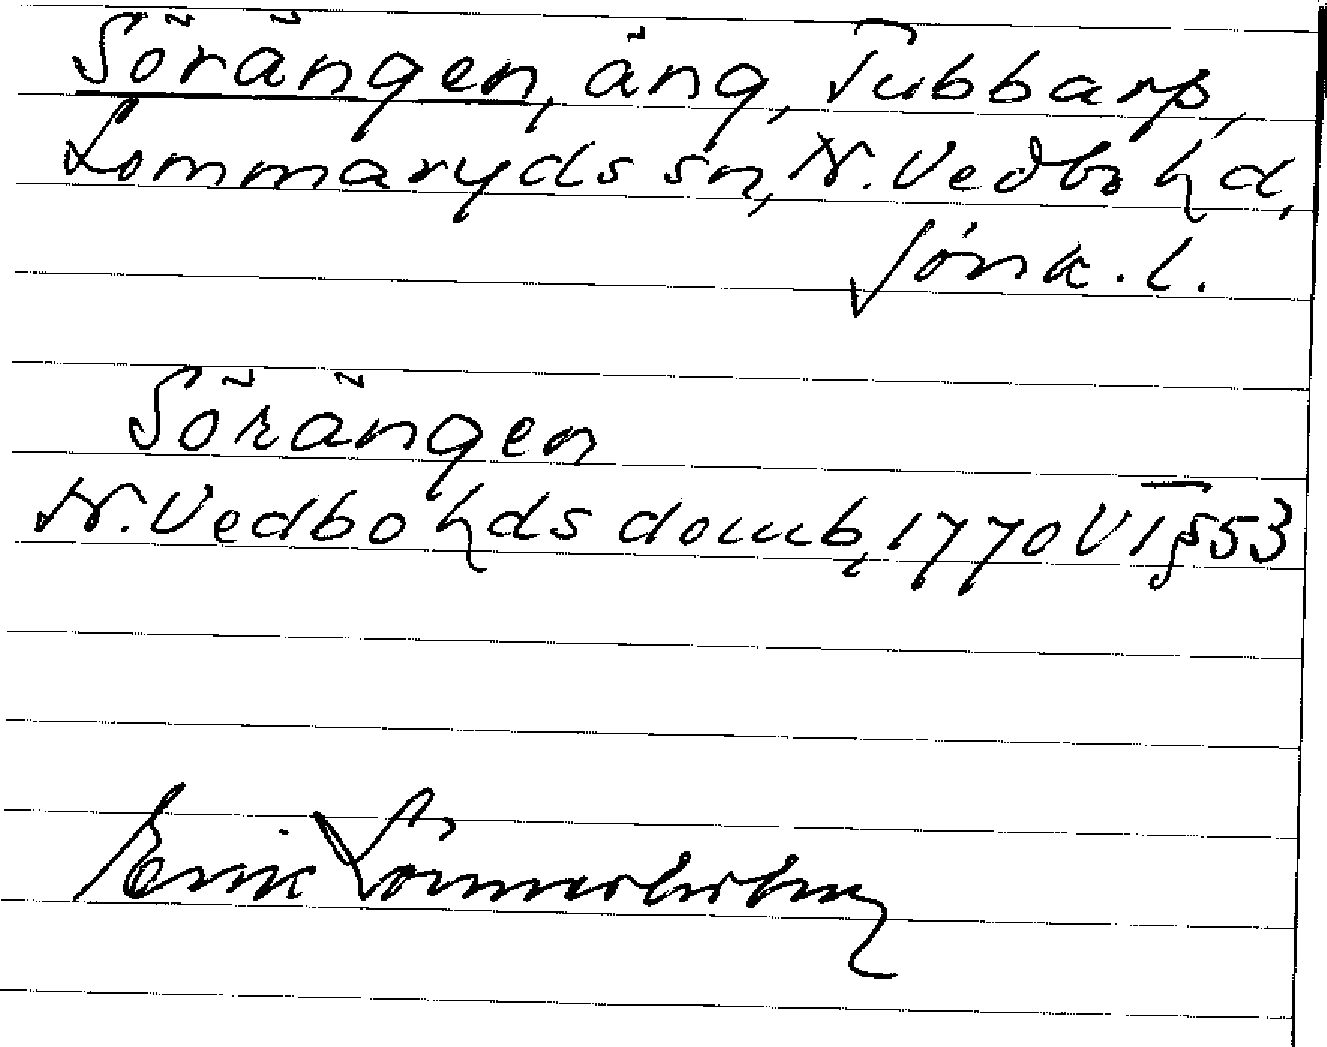 Sörängen, äng, Tubbarp,
Lommaryds sn, N. Vedbo hd,
Jönk. l.
Sörängen
N. Vedbo hds domb, 1770 VT § 53
Erik